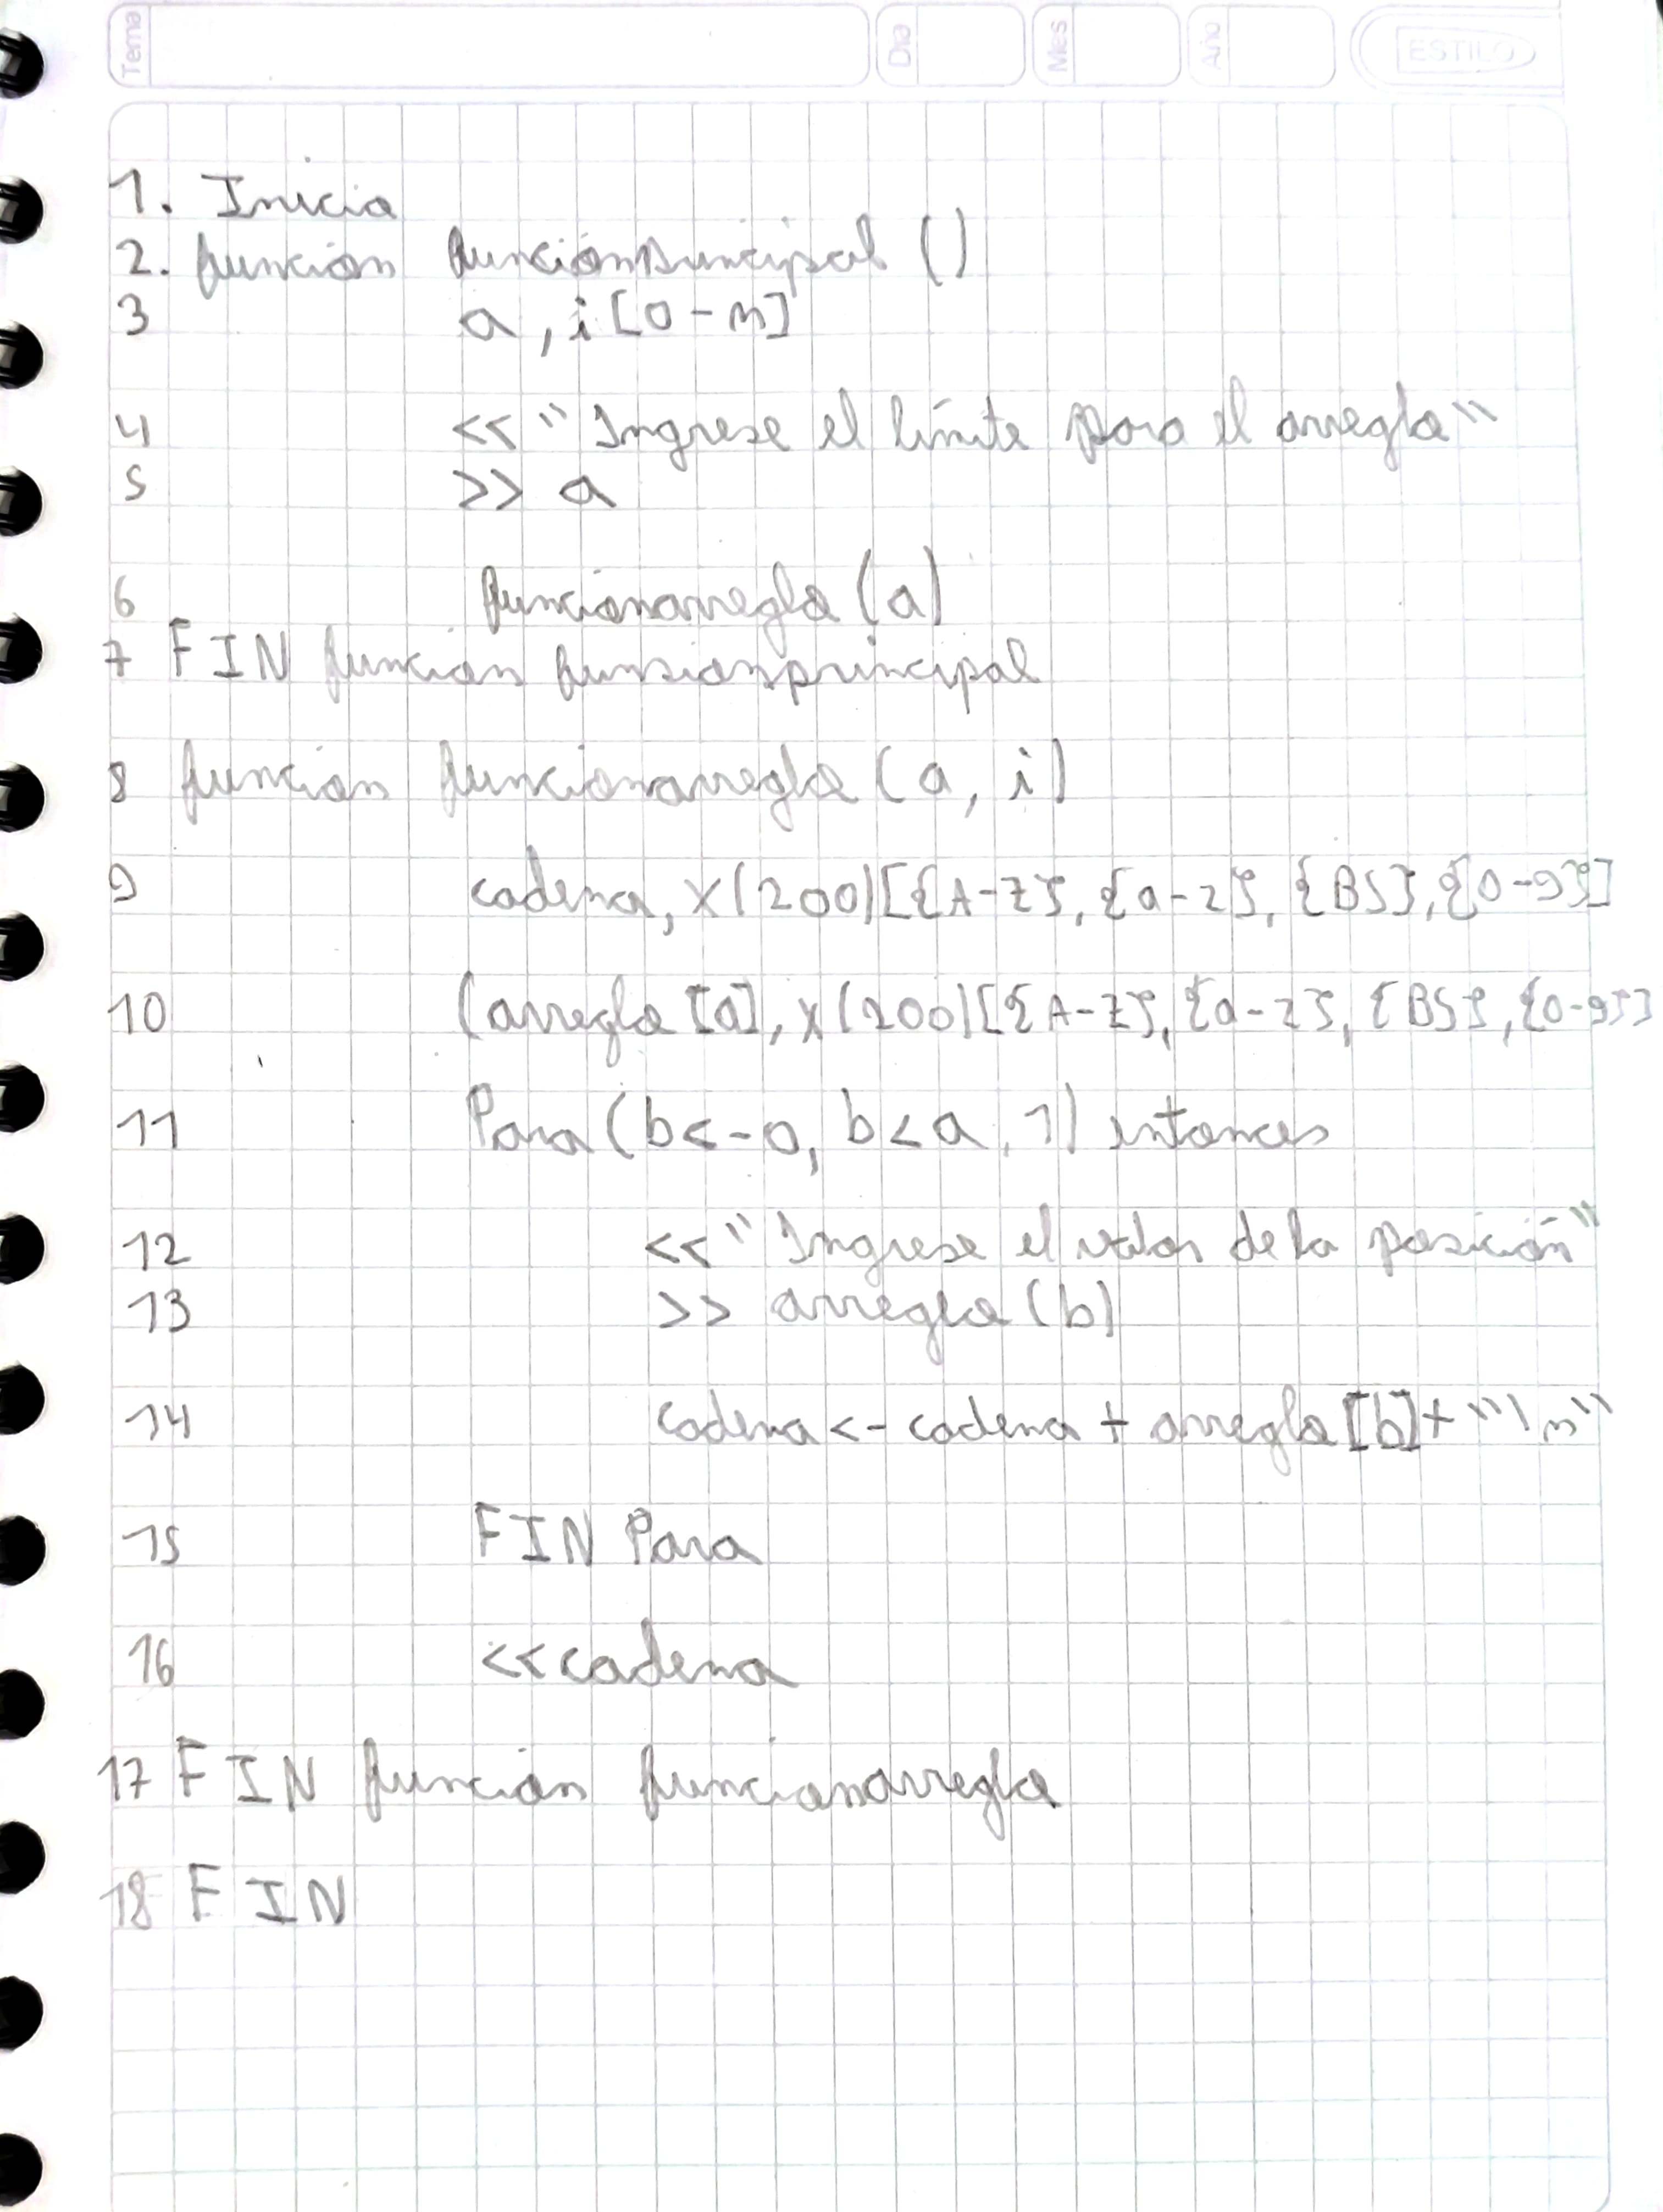 Tema Dia Mes Año ESTILO
1. Inicio
2. función funciónprincipal ()
3 a, i [0-n]
4 << "Ingrese el límite para el arreglo"
5 >> a
6 funcionarreglo (a)
7 FIN función funsionprincipal
8 función funcionarreglo (a, i)
9 cadena, X(200)[{A-Z}, {a-z}, {BS}, {0-9}]
10 (arreglo [a], x(200)[{A-Z}, {a-z}, {BS}, {0-9}]
11 Para (b<-0, b<a, 1) entonces
12 << "Ingrese el valor de la posición"
13 >> arreglo (b)
14 cadena <- cadena + arreglo [b] + "\n"
15 FIN Para
16 << cadena
17 FIN función funcionarreglo
18 FIN